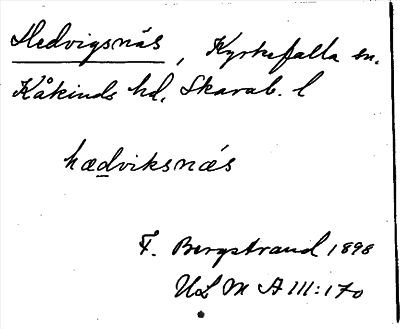 Hedvigsnäs, Kyrkefalla sn.
Kåkinds hd, Skarab. l
hædviksnæ´s
F. Bergstrand 1898
ULM A III:170